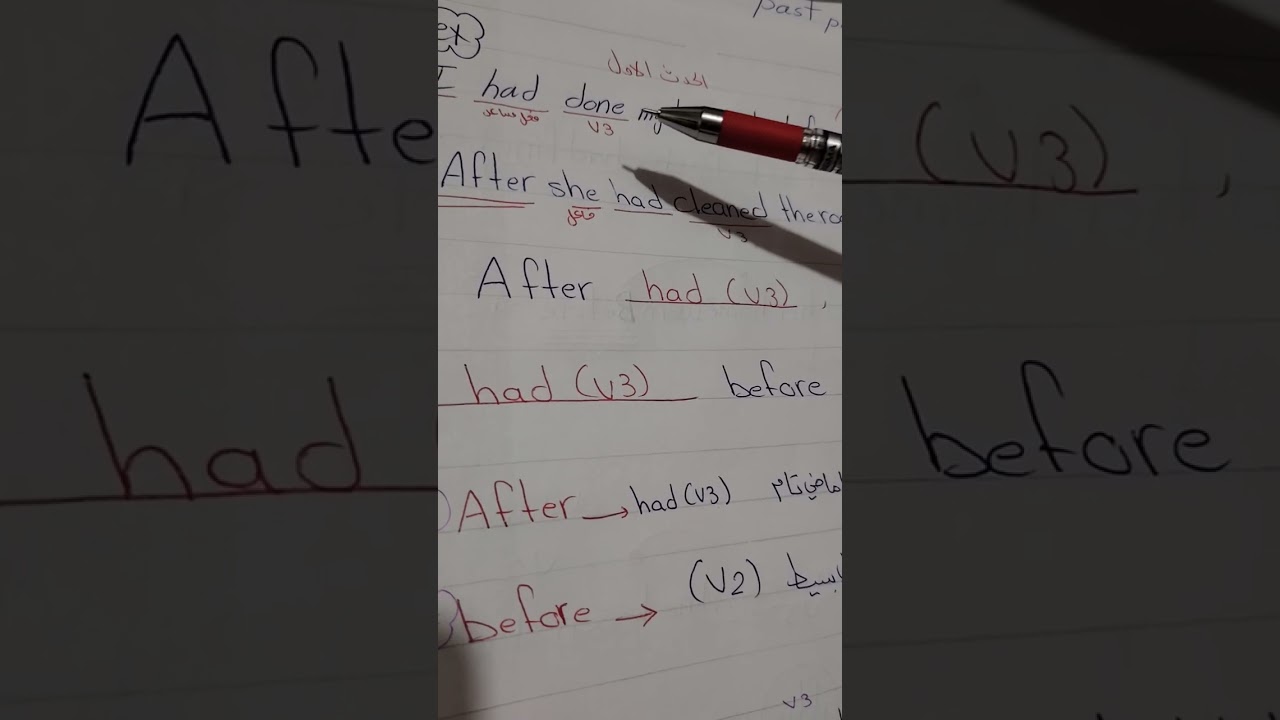 past p
ex
الحدث الاول
I had done my
فعل مساعد V3
After she had cleaned the ro
فاعل V3
After had (V3) ,
had (V3) before
After → had (V3) ماضي تام
before → (V2) بسيط
V3